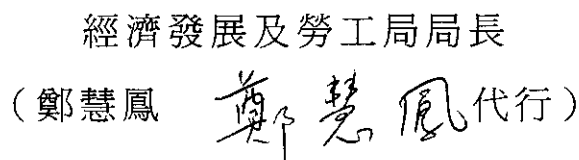 經濟發展及勞工局局長
（鄭慧鳳 鄭慧鳳代行）